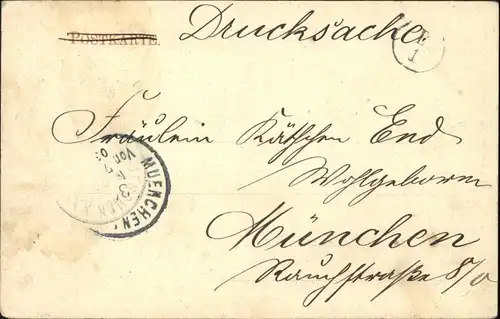 POSTKARTE.
Drucksache
1
Fräulein Käthchen End
Wohlgeboren
München
Rauchstraße 8/0
MUENCHEN